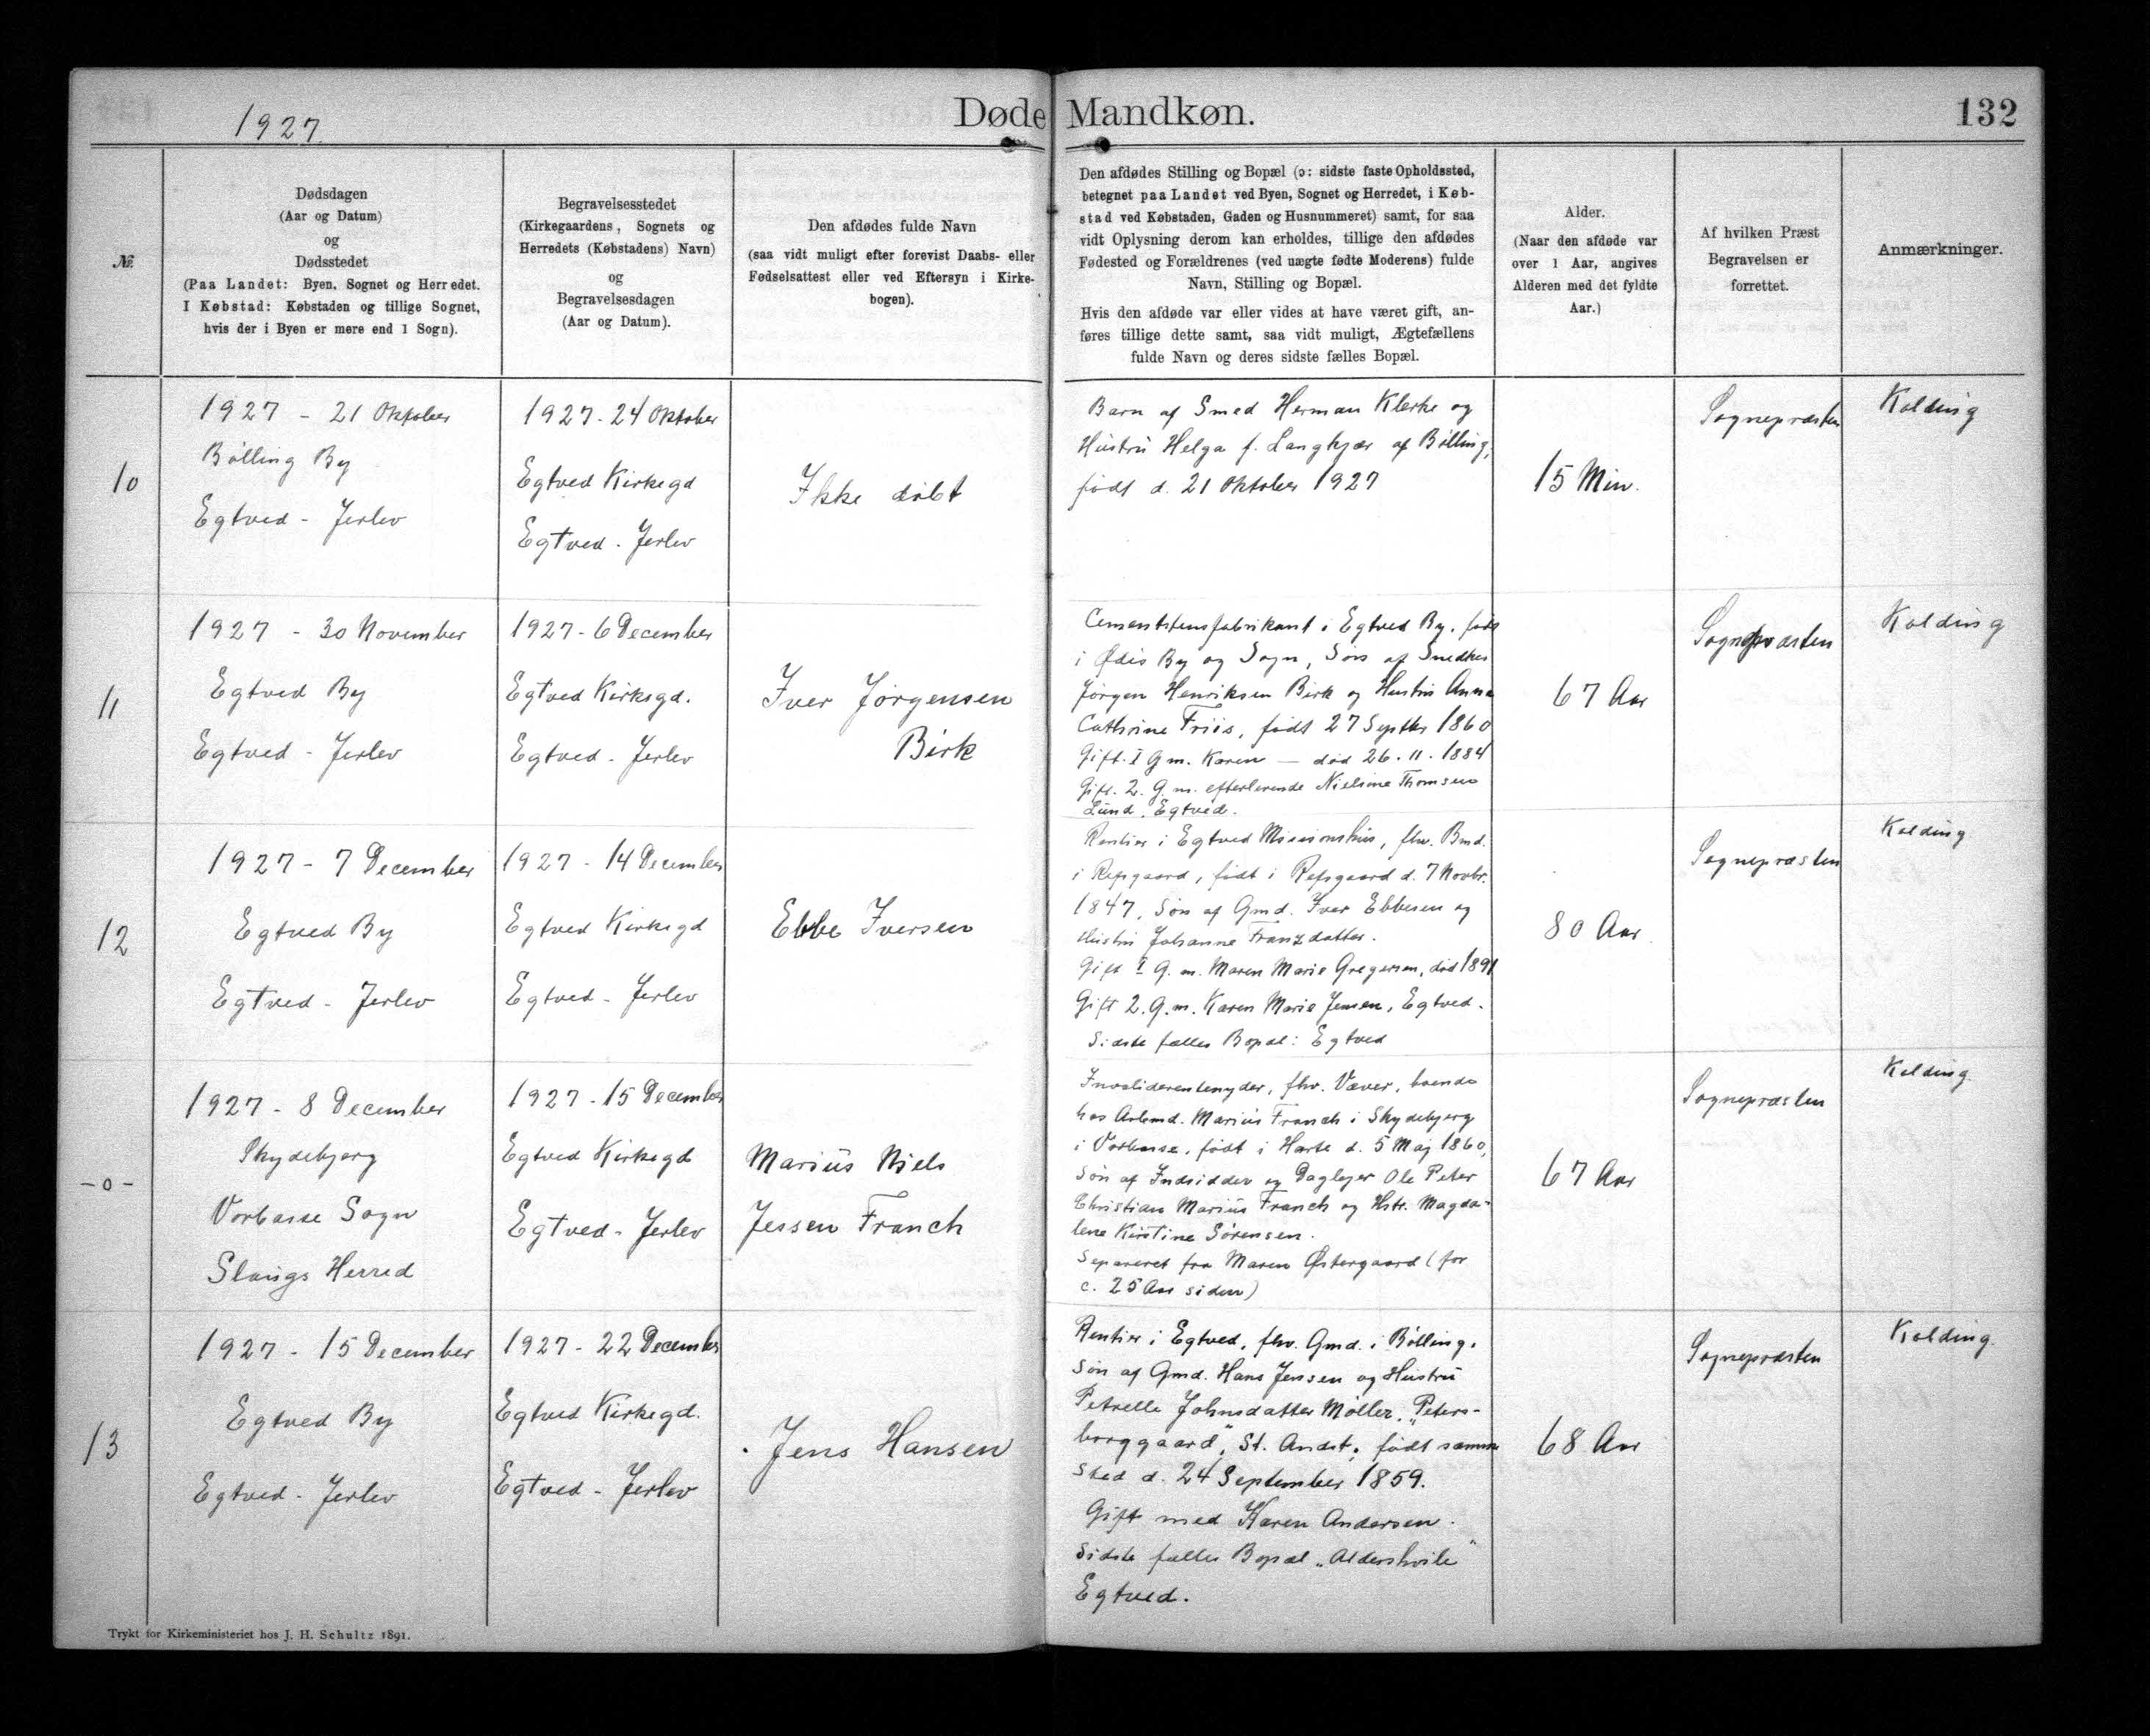 1927.
Døde Mandkøn.
132
№
Dødsdagen
(Aar og Datum)
og
Dødsstedet
(Paa Landet: Byen, Sognet og Herredet.
I Købstad: Købstaden og tillige Sognet,
hvis der i Byen er mere end 1 Sogn).
Begravelsesstedet
(Kirkegaardens, Sognets og
Herredets (Købstadens) Navn)
og
Begravelsesdagen
(Aar og Datum).
Den afdødes fulde Navn
(saa vidt muligt efter forevist Daabs- eller
Fødselsattest eller ved Eftersyn i Kirke-
bogen).
Den afdødes Stilling og Bopæl (ɔ: sidste faste Opholdssted,
betegnet paa Landet ved Byen, Sognet og Herredet, i Køb-
stad ved Købstaden, Gaden og Husnummeret) samt, for saa
vidt Oplysning derom kan erholdes, tillige den afdødes
Fødested og Forældrenes (ved uægte fødte Moderens) fulde
Navn, Stilling og Bopæl.
Hvis den afdøde var eller vides at have været gift, an-
føres tillige dette samt, saa vidt muligt, Ægtefællens
fulde Navn og deres sidste fælles Bopæl.
Alder.
(Naar den afdøde var
over 1 Aar, angives
Alderen med det fyldte
Aar.)
Af hvilken Præst
Begravelsen er
forrettet.
Anmærkninger.
10
1927 - 21 Oktober
Bølling By
Egtved - Jerlev
1927 - 24 Oktober
Egtved Kirkegd
Egtved - Jerlev
Ikke døbt
Barn af Smed Herman Klerke og
Hustru Helga f. Langkjær af Bølling,
født d. 21 Oktober 1927
15 Min.
Sognepræsten
Kolding
11
1927 - 30 November
Egtved By
Egtved - Jerlev
1927 - 6 December
Egtved Kirkegd.
Egtved - Jerlev
Iver Jørgensen
Birk
Cementstensfabrikant i Egtved By. født
i Ødis By og Sogn, Søn af Snedker
Jørgen Henriksen Birk og Hustru Anna
Cathrine Friis, født 27 Septbr 1860
Gift. I G m. Karen — død 26. 11. 1884
Gift. 2. G. m. efterlevende Nielsine Thomsen
Lund. Egtved.
67 Aar
Sognepræsten
Kolding
12
1927 - 7 December
Egtved By
Egtved - Jerlev
1927 - 14 December
Egtved Kirkegd
Egtved - Jerlev
Ebbe Iversen
Rentier i Egtved Missionshus, fhv. Bmd.
i Refsgaard, født i Refsgaard d. 7 Novbr.
1847, Søn af Gmd. Iver Ebbesen og
Hustru Johanne Franzdatter.
Gift I G. m. Maren Marie Gregersen, død 1891
Gift 2. G. m. Karen Marie Jensen, Egtved.
Sidste fælles Bopæl: Egtved
80 Aar
Sognepræsten
Kolding
- o -
1927 - 8 December
Skydebjerg
Vorbasse Sogn
Slaugs Herred
1927 - 15 December
Egtved Kirkegd
Egtved - Jerlev
Marius Niels
Jessen Franch
Invaliderentenyder, fhv. Væver, boende
hos Arbmd. Marius Franch i Skydebjerg
i Vorbasse, født i Harte d. 5 Maj 1860,
Søn af Indsidder og Daglejer Ole Peter
Christian Marius Franch og Hstr. Magda-
lene Kirstine Sørensen.
Separeret fra Maren Østergaard (for
c. 25 Aar siden)
67 Aar
Sognepræsten
Kolding.
13
1927 - 15 December
Egtved By
Egtved - Jerlev
1927 - 22 December
Egtved Kirkegd.
Egtved - Jerlev
Jens Hansen
Rentier i Egtved, fhv. Gmd. i Bølling.
Søn af Gmd. Hans Jensen og Hustru
Petrelle Johnsdatter Møller, „Peters-
borggaard", St. Andst, født samme
Sted d. 24 September 1859.
Gift med Karen Andersen.
Sidste fælles Bopæl „Aldershvile"
Egtved.
68 Aar
Sognepræsten
Kolding.
Trykt for Kirkeministeriet hos J. H. Schultz 1891.